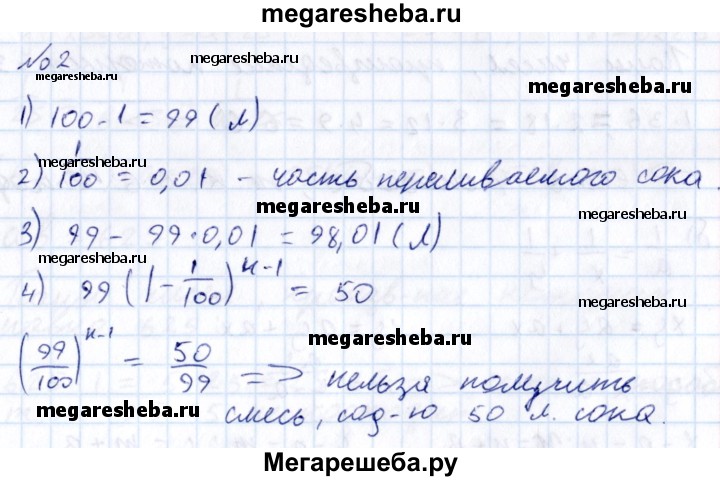 megaresheba.ru
№2
megaresheba.ru
megaresheba.ru
1) 100-1 = 99 (л)
megaresheba.ru
megaresheba.ru
2) 1/100 = 0,01 - часть переливаемого сока.
megaresheba.ru
3) 99 - 99·0,01 = 98,01 (л)
megaresheba.ru
megaresheba.ru
4) 99 (1 - 1/100)^{к-1} = 50
megaresheba.ru
(99/100)^{к-1} = 50/99 => нельзя получить
megaresheba.ru
megaresheba.ru
смесь, сод-ю 50 л. сока.
Мегарешеба.ру